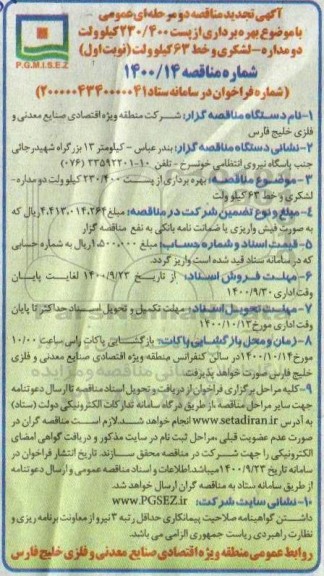 آگهی تجدید مناقصه دو مرحله ای عمومی
با موضوع بهره برداری از پست ۲۳۰/۴۰۰ کیلو ولت
دو مداره - لشکری و خط ۶۳ کیلو ولت (نوبت اول)
P.G.M.I.S.E.Z
شماره مناقصه ۱۴۰۰/۱۴
(شماره فراخوان در سامانه ستاد ۲۰۰۰۰۰۴۳۴۰۰۰۰۰۴۱)
۱- نام دستگاه مناقصه گزار: شرکت منطقه ویژه اقتصادی صنایع معدنی و
فلزی خلیج فارس
۲- نشانی دستگاه مناقصه گزار: بندرعباس - کیلومتر ۱۳ بزرگراه شهید رجائی
جنب پاسگاه نیروی انتظامی خونسرخ - تلفن ۱۰-۳۳۵۹۲۲۰۱ (۰۷۶)
۳- موضوع مناقصه: بهره برداری از پست ۲۳۰/۴۰۰ کیلو ولت دو مداره -
لشکری و خط ۶۳ کیلو ولت
۴- مبلغ و نوع تضمین شرکت در مناقصه: مبلغ ۴.۴۱۳.۰۱۴.۲۶۴ ریال که
به صورت فیش واریزی یا ضمانت نامه بانکی به نفع مناقصه گزار
۵- قیمت اسناد و شماره حساب: مبلغ ۱.۵۰۰.۰۰۰ ریال به شماره حسابی
که در سامانه ستاد قید شده است واریز گردد.
۶- مهلت فروش اسناد: از تاریخ ۱۴۰۰/۹/۲۳ لغایت پایان
وقت اداری ۱۴۰۰/۹/۳۰
۷- مهلت تحویل اسناد: مهلت تکمیل و تحویل اسناد حداکثر تا پایان
وقت اداری مورخ ۱۴۰۰/۱۰/۱۳
۸- زمان و محل بازگشایی پاکات: بازگشایی پاکات راس ساعت ۱۰/۰۰
مورخ ۱۴۰۰/۱۰/۱۴ در سالن کنفرانس منطقه ویژه اقتصادی صنایع معدنی و فلزی
خلیج فارس صورت خواهد پذیرفت
۹- کلیه مراحل برگزاری فراخوان از دریافت و تحویل اسناد مناقصه تا ارسال دعوتنامه
جهت سایر مراحل مناقصه از طریق درگاه سامانه تدارکات الکترونیکی دولت (ستاد)
به آدرس www.setadiran.ir انجام خواهد شد. لازم است مناقصه گران در
صورت عدم عضویت قبلی، مراحل ثبت نام در سایت مذکور و دریافت گواهی امضای
الکترونیکی را جهت شرکت در مناقصه محقق سازند. تاریخ انتشار فراخوان در
سامانه تاریخ ۱۴۰۰/۹/۲۳ میباشد. اطلاعات و اسناد مناقصه عمومی و ارسال دعوتنامه
از طریق سامانه ستاد به مناقصه گران ارسال خواهد شد.
۱۰- نشانی سایت شرکت: www.PGSEZ.ir
داشتن گواهینامه صلاحیت پیمانکاری حداقل رتبه ۳ نیرو از معاونت برنامه ریزی و
نظارت راهبردی ریاست جمهوری الزامی می باشد.
روابط عمومی منطقه ویژه اقتصادی صنایع معدنی و فلزی خلیج فارس